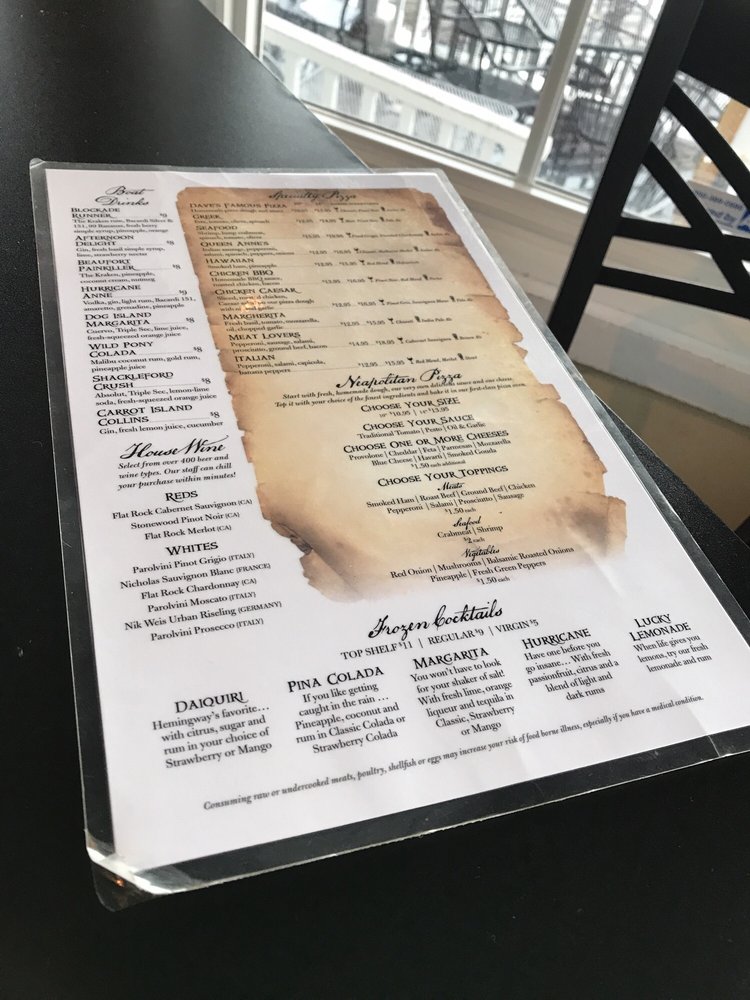 Boat
Drinks
BLOCKADE
RUNNER $9
The Kraken rum, Bacardi Silver &
151, 99 Bananas, fresh berry
simple syrup, pineapple, orange
AFTERNOON
DELIGHT $8
Gin, fresh basil simple syrup,
lime, strawberry nectar
BEAUFORT
PAINKILLER $8
The Kraken, pineapple,
coconut cream, nutmeg
HURRICANE
ANNE $9
Vodka, gin, light rum, Bacardi 151,
amaretto, grenadine, pineapple
DOG ISLAND
MARGARITA $8
Cuervo, Triple Sec, lime juice,
fresh-squeezed orange juice
WILD PONY
COLADA $8
Malibu coconut rum, gold rum,
pineapple juice
SHACKLEFORD
CRUSH $8
Absolut, Triple Sec, lemon-lime
soda, fresh-squeezed orange juice
CARROT ISLAND
COLLINS $8
Gin, fresh lemon juice, cucumber
House Wine
Select from over 400 beer and
wine types. Our staff can chill
your purchase within minutes!
REDS
Flat Rock Cabernet Sauvignon (CA)
Stonewood Pinot Noir (CA)
Flat Rock Merlot (CA)
WHITES
Parolvini Pinot Grigio (ITALY)
Nicholas Sauvignon Blanc (FRANCE)
Flat Rock Chardonnay (CA)
Parolvini Moscato (ITALY)
Nik Weis Urban Riseling (GERMANY)
Parolvini Prosecco (ITALY)
Specialty Pizza
DAVE'S FAMOUS PIZZA
GREEK
Feta, tomato, olives, spinach
SEAFOOD
Shrimp, lump crabmeat,
spinach, tomato, olives
QUEEN ANNE'S
Italian sausage, pepperoni,
salami, spinach, peppers, onions
HAWAIIAN
Smoked ham, pineapple
CHICKEN BBQ
Homemade BBQ sauce,
roasted chicken, bacon $13.95 $16.95
CHICKEN CAESAR
Sliced, roasted chicken,
Caesar sauce on our pizza dough
with roasted garlic $12.95 $16.95 Pinot Gris, Sauvignon Blanc Pale Ale
MARGHERITA
Fresh basil, tomato, mozzarella,
oil, chopped garlic $12.95 $15.95 Chianti India Pale Ale
MEAT LOVERS
Pepperoni, sausage, salami,
prosciutto, ground beef, bacon $14.95 $18.95 Cabernet Sauvignon Brown Ale
ITALIAN
Pepperoni, salami, capicola,
banana peppers $12.95 $15.95 Red Blend, Merlot Stout
Neapolitan Pizza
Start with fresh, homemade dough, our very own delicious sauce and our cheese.
Top it with your choice of the finest ingredients and bake it in our first-class pizza oven.
CHOOSE YOUR SIZE
10" $10.95 | 14" $13.95
CHOOSE YOUR SAUCE
Traditional Tomato | Pesto | Oil & Garlic
CHOOSE ONE OR MORE CHEESES
Provolone | Cheddar | Feta | Parmesan | Mozzarella
Blue Cheese | Havarti | Smoked Gouda
$1.50 each additional
CHOOSE YOUR TOPPINGS
Meats
Smoked Ham | Roast Beef | Ground Beef | Chicken
Pepperoni | Salami | Prosciutto | Sausage
$1.50 each
Seafood
Crabmeat | Shrimp
$2 each
Vegetables
Red Onion | Mushrooms | Balsamic Roasted Onions
Pineapple | Fresh Green Peppers
$1.50 each
Frozen Cocktails
TOP SHELF $11 | REGULAR $9 | VIRGIN $5
DAIQUIRI
Hemingway's favorite...
with citrus, sugar and
rum in your choice of
Strawberry or Mango
PINA COLADA
If you like getting
caught in the rain ...
Pineapple, coconut and
rum in Classic Colada or
Strawberry Colada
MARGARITA
You won't have to look
for your shaker of salt!
With fresh lime, orange
liqueur and tequila in
Classic, Strawberry
or Mango
HURRICANE
Have one before you
go insane... With fresh
passionfruit, citrus and a
blend of light and
dark rums
LUCKY
LEMONADE
When life gives you
lemons, try our fresh
lemonade and rum
Consuming raw or undercooked meats, poultry, shellfish or eggs may increase your risk of food borne illness, especially if you have a medical condition.